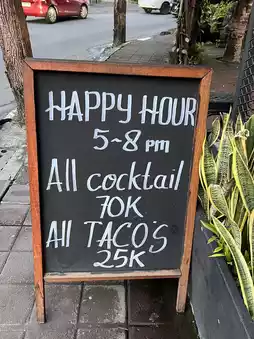 HAPPY HOUR
5~8 PM
All cocktail
70K
All TACO'S
25K